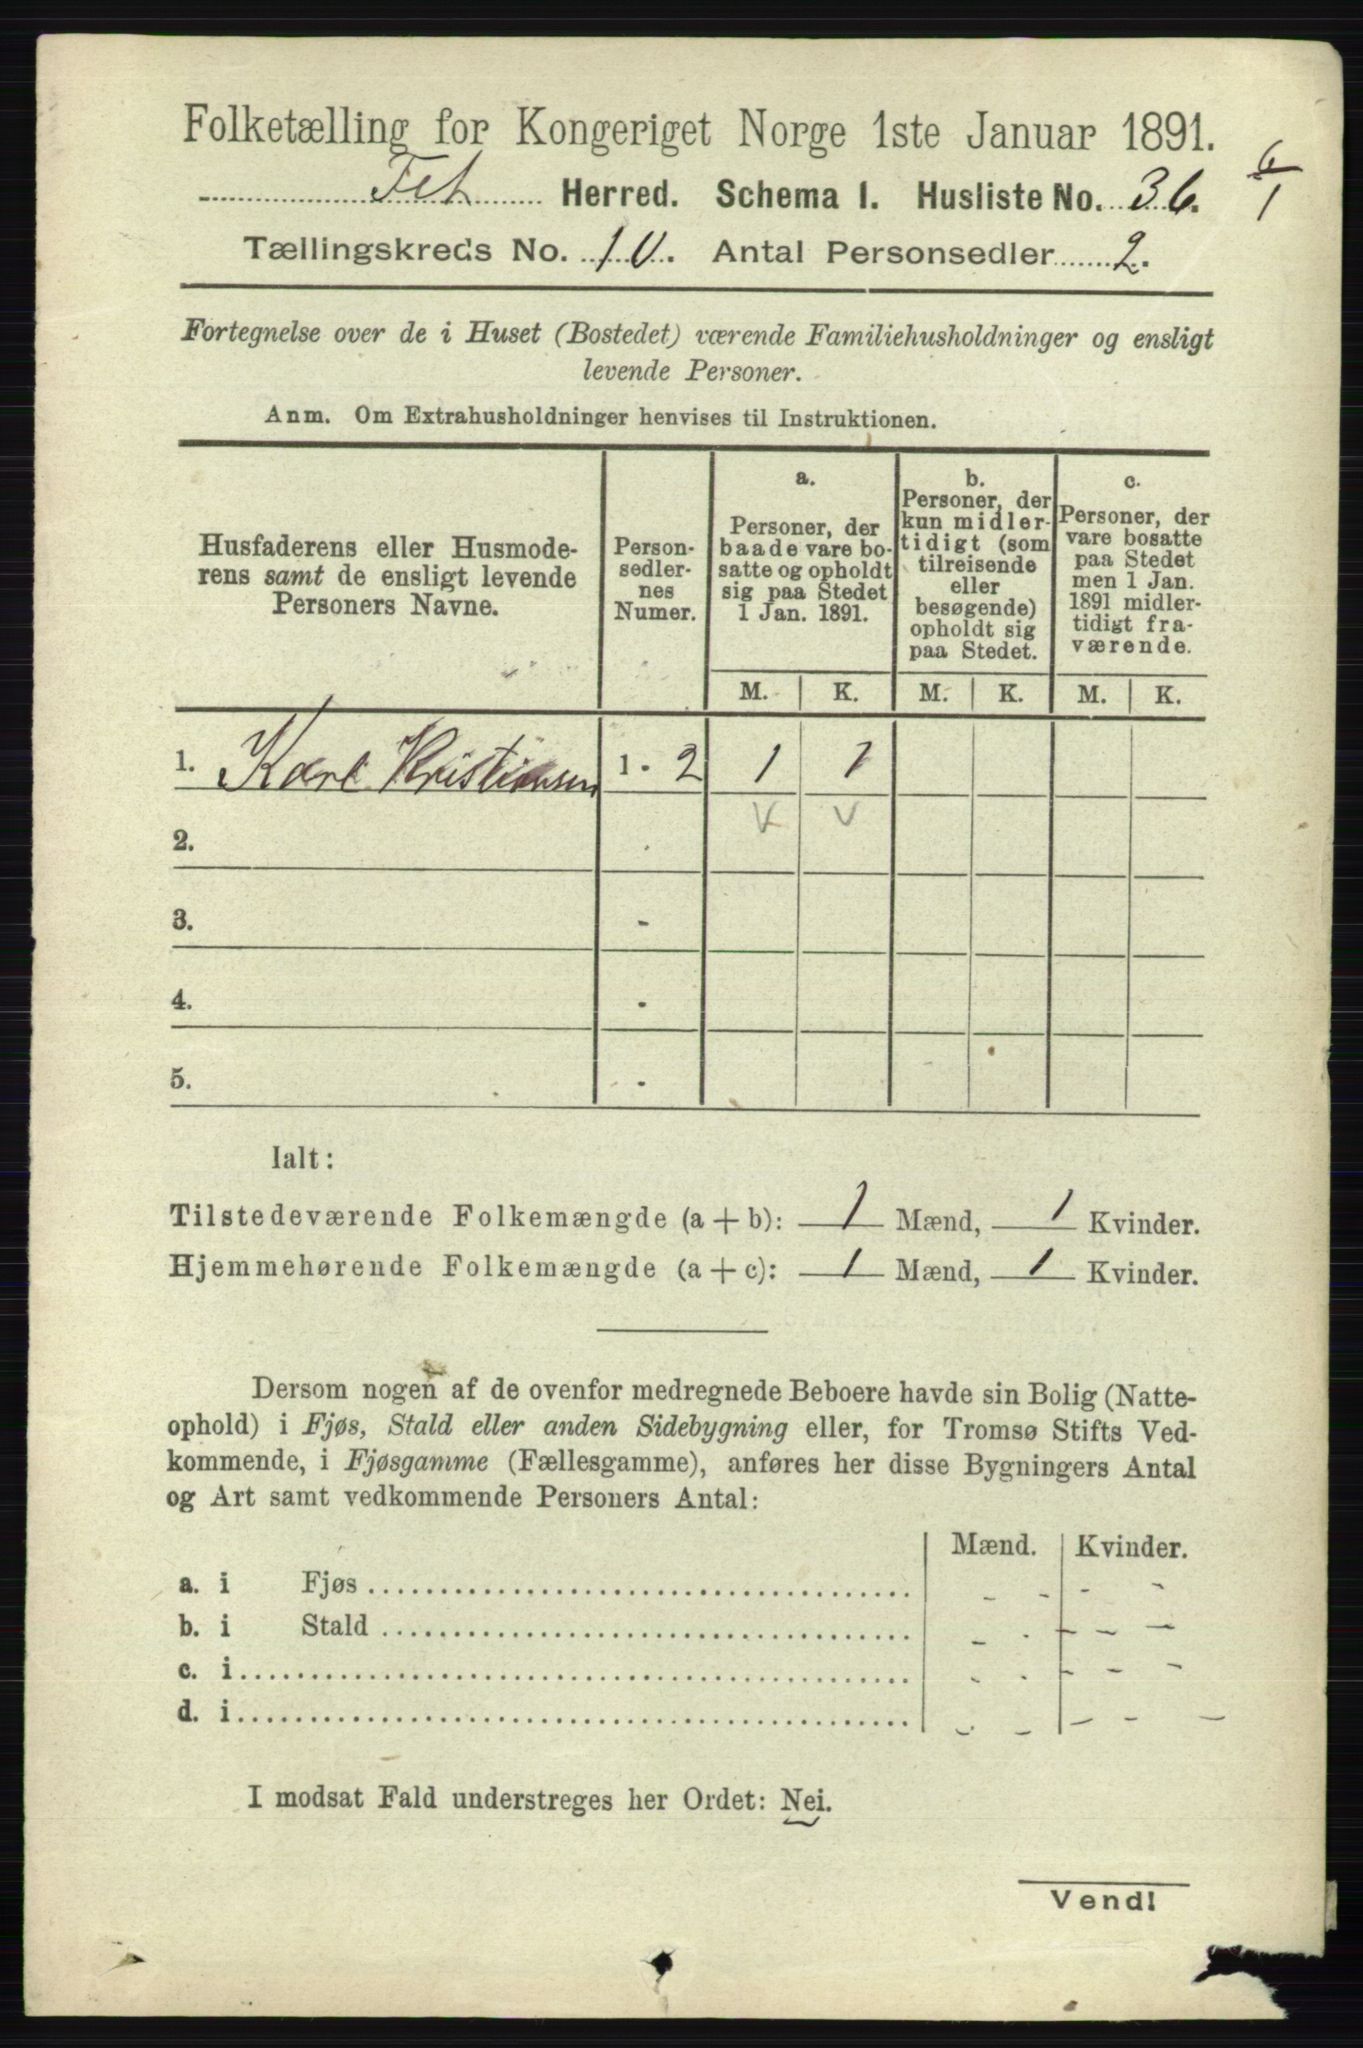 Folketælling for Kongeriget Norge 1ste Januar 1891.
Fet Herred. Schema 1. Husliste No. 36. 6/1
Tællingskreds No. 10. Antal Personsedler 2.
Fortegnelse over de i Huset (Bostedet) værende Familiehusholdninger og ensligt
levende Personer.
Anm. Om Extrahusholdninger henvises til Instruktionen.
Husfaderens eller Husmode-
rens samt de ensligt levende
Personers Navne.
Person-
sedler-
nes
Numer.
a.
Personer, der
baade vare bo-
satte og opholdt
sig paa Stedet
1 Jan. 1891.
b.
Personer, der
kun midler-
tidigt (som
tilreisende
eller
besøgende)
opholdt sig
paa Stedet.
c.
Personer, der
vare bosatte
paa Stedet
men 1 Jan.
1891 midler-
tidigt fra-
værende.
M. K. M. K. M. K.
1. Karl Kristiansen 1 - 2 1 1
2. -
3. -
4. -
5. -
Ialt:
Tilstedeværende Folkemængde (a + b): 1 Mænd, 1 Kvinder.
Hjemmehørende Folkemængde (a + c): 1 Mænd, 1 Kvinder.
Dersom nogen af de ovenfor medregnede Beboere havde sin Bolig (Natte-
ophold) i Fjøs, Stald eller anden Sidebygning eller, for Tromsø Stifts Ved-
kommende, i Fjøsgamme (Fællesgamme), anføres her disse Bygningers Antal
og Art samt vedkommende Personers Antal:
Mænd. Kvinder.
a. i Fjøs - - - -
b. i Stald - - - - -
c. i - - - - -
d. i - - - - -
I modsat Fald understreges her Ordet: Nei.
Vend!